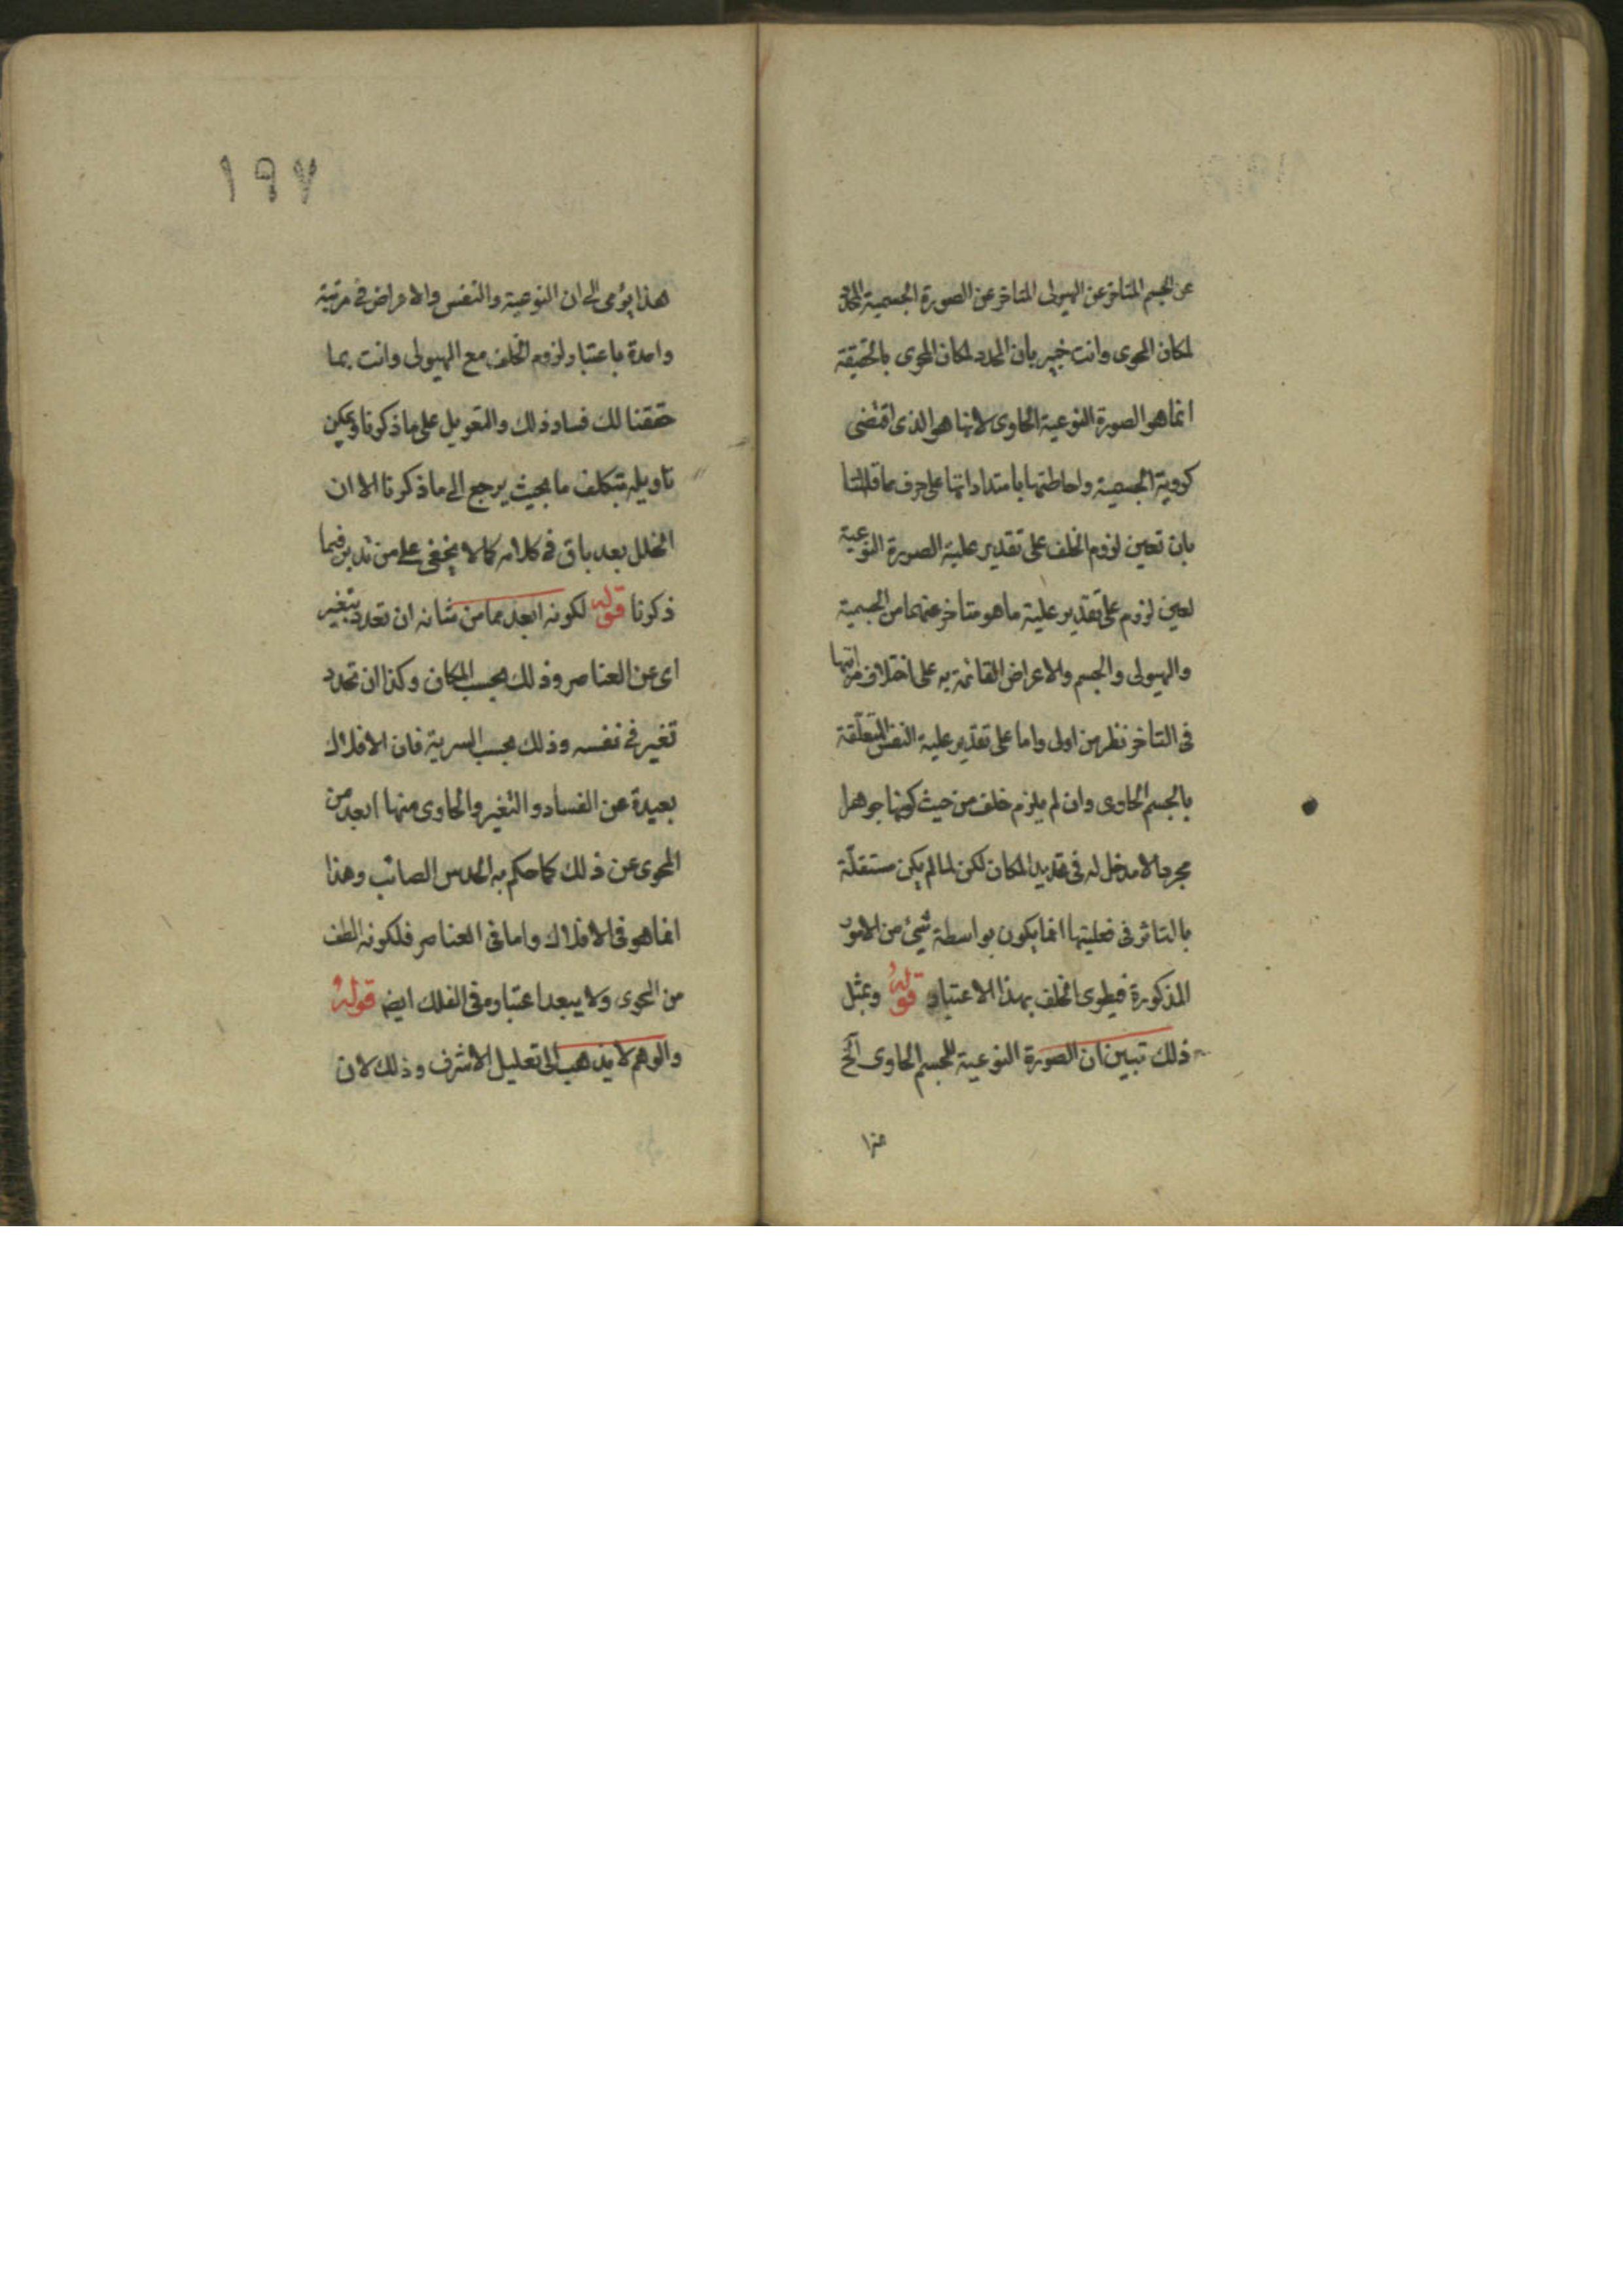 عن الجسم المتاخر عن الهيولى المتاخر عن الصورة الجسمية المحدد
لمكان المحوى وانت خبير بان المحدد لمكان المحوى بالحقيقة
انما هو الصورة النوعية الحاوى لانها هو الذى اقتضى
كروية الجسمية واحاطتها بامتداداتها على
بان تعين لزوم الخلف على تقدير علية الصورة النوعية
لعين لزوم على تقدير علية ما هو متاخر عنهما من الجسمية
والهيولى والجسم والاعراض القائمة به على اختلاف مراتبها
فى التاخر نظر من اولى واما على تقدير علية النفس المتعلقة
بالجسم الحاوى وان لم يلزم خلف من حيث كونها جوهرا
مجردا لا مدخل له فى تحديد المكان لكن لما لم يكن مستقلة
بالتاثر فى فعليتها انما يكون بواسطة شئ من الامور
المذكورة فيطوى الخلف بهذا الاعتبار قوله وبمثل
ذلك تبين ان الصورة النوعية للجسم الحاوى الخ
هذا
١٩٧
هذا يؤمى الى ان النوعية والنفس والاعراض فى مرتبة
واحدة باعتبار لزوم الخلف مع الهيولى وانت بما
حققنا لك فساد ذلك والتعويل على ما ذكرنا ويمكن
تاويله بتكلف ما بحيث يرجع الى ما ذكرنا الا ان
الخلل بعد باق فى كلامه كما لا يخفى على من تدبر فيما
ذكرنا قوله لكونه ابعد مما من شانه ان تعدد بتغير
اى عن العناصر وذلك بحسب المكان وكذا ان تحدد
تغير فى نفسه وذلك بحسب السرية فان الافلاك
بعيدة عن الفساد والتغير والحاوى منها ابعد من
المحوى عن ذلك كما حكم به الحدس الصائب وهذا
انما هو فى الافلاك واما فى العناصر فلكونه الطف
من المحوى ولا يبعد اعتباره فى الفلك ايضا قوله
والوهم لا يذهب الى تعليل الاشرف وذلك لان